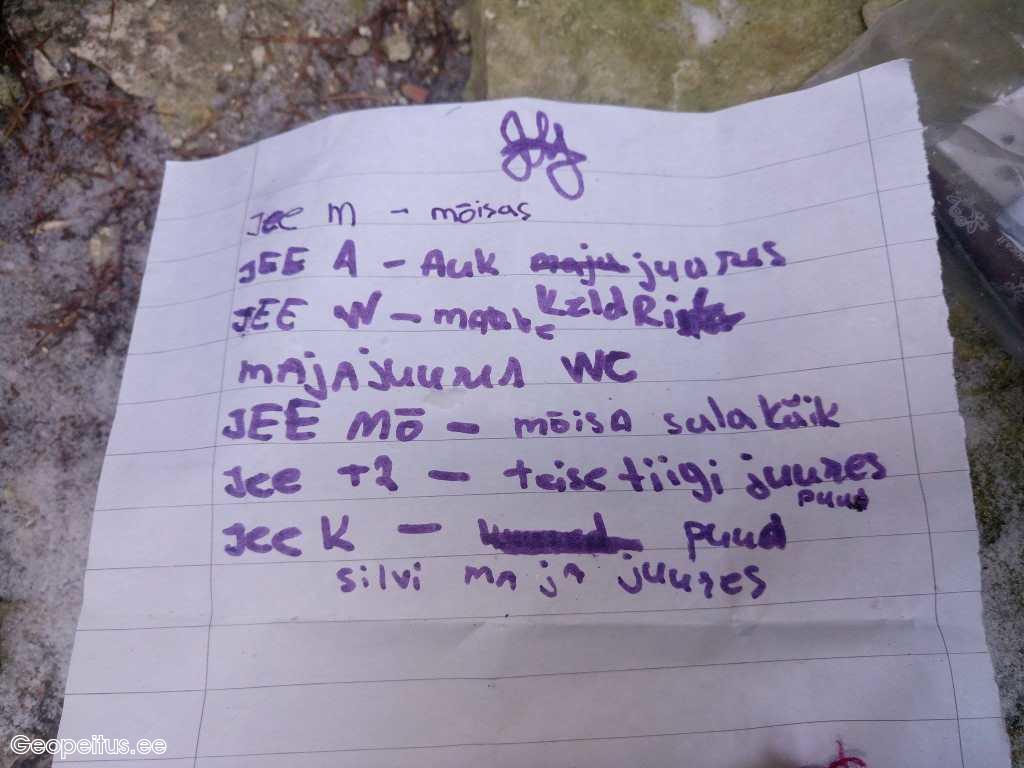 Jee M - mõisas
JEE A - Auk juures
JEE W - KEldRi
MAjAjuures WC
JEE MŌ - mōisA salakäik
Jee T2 - teise tiigi juures
puud
Jee K - puud
silvi MAjA juures
Geopeitus.ee